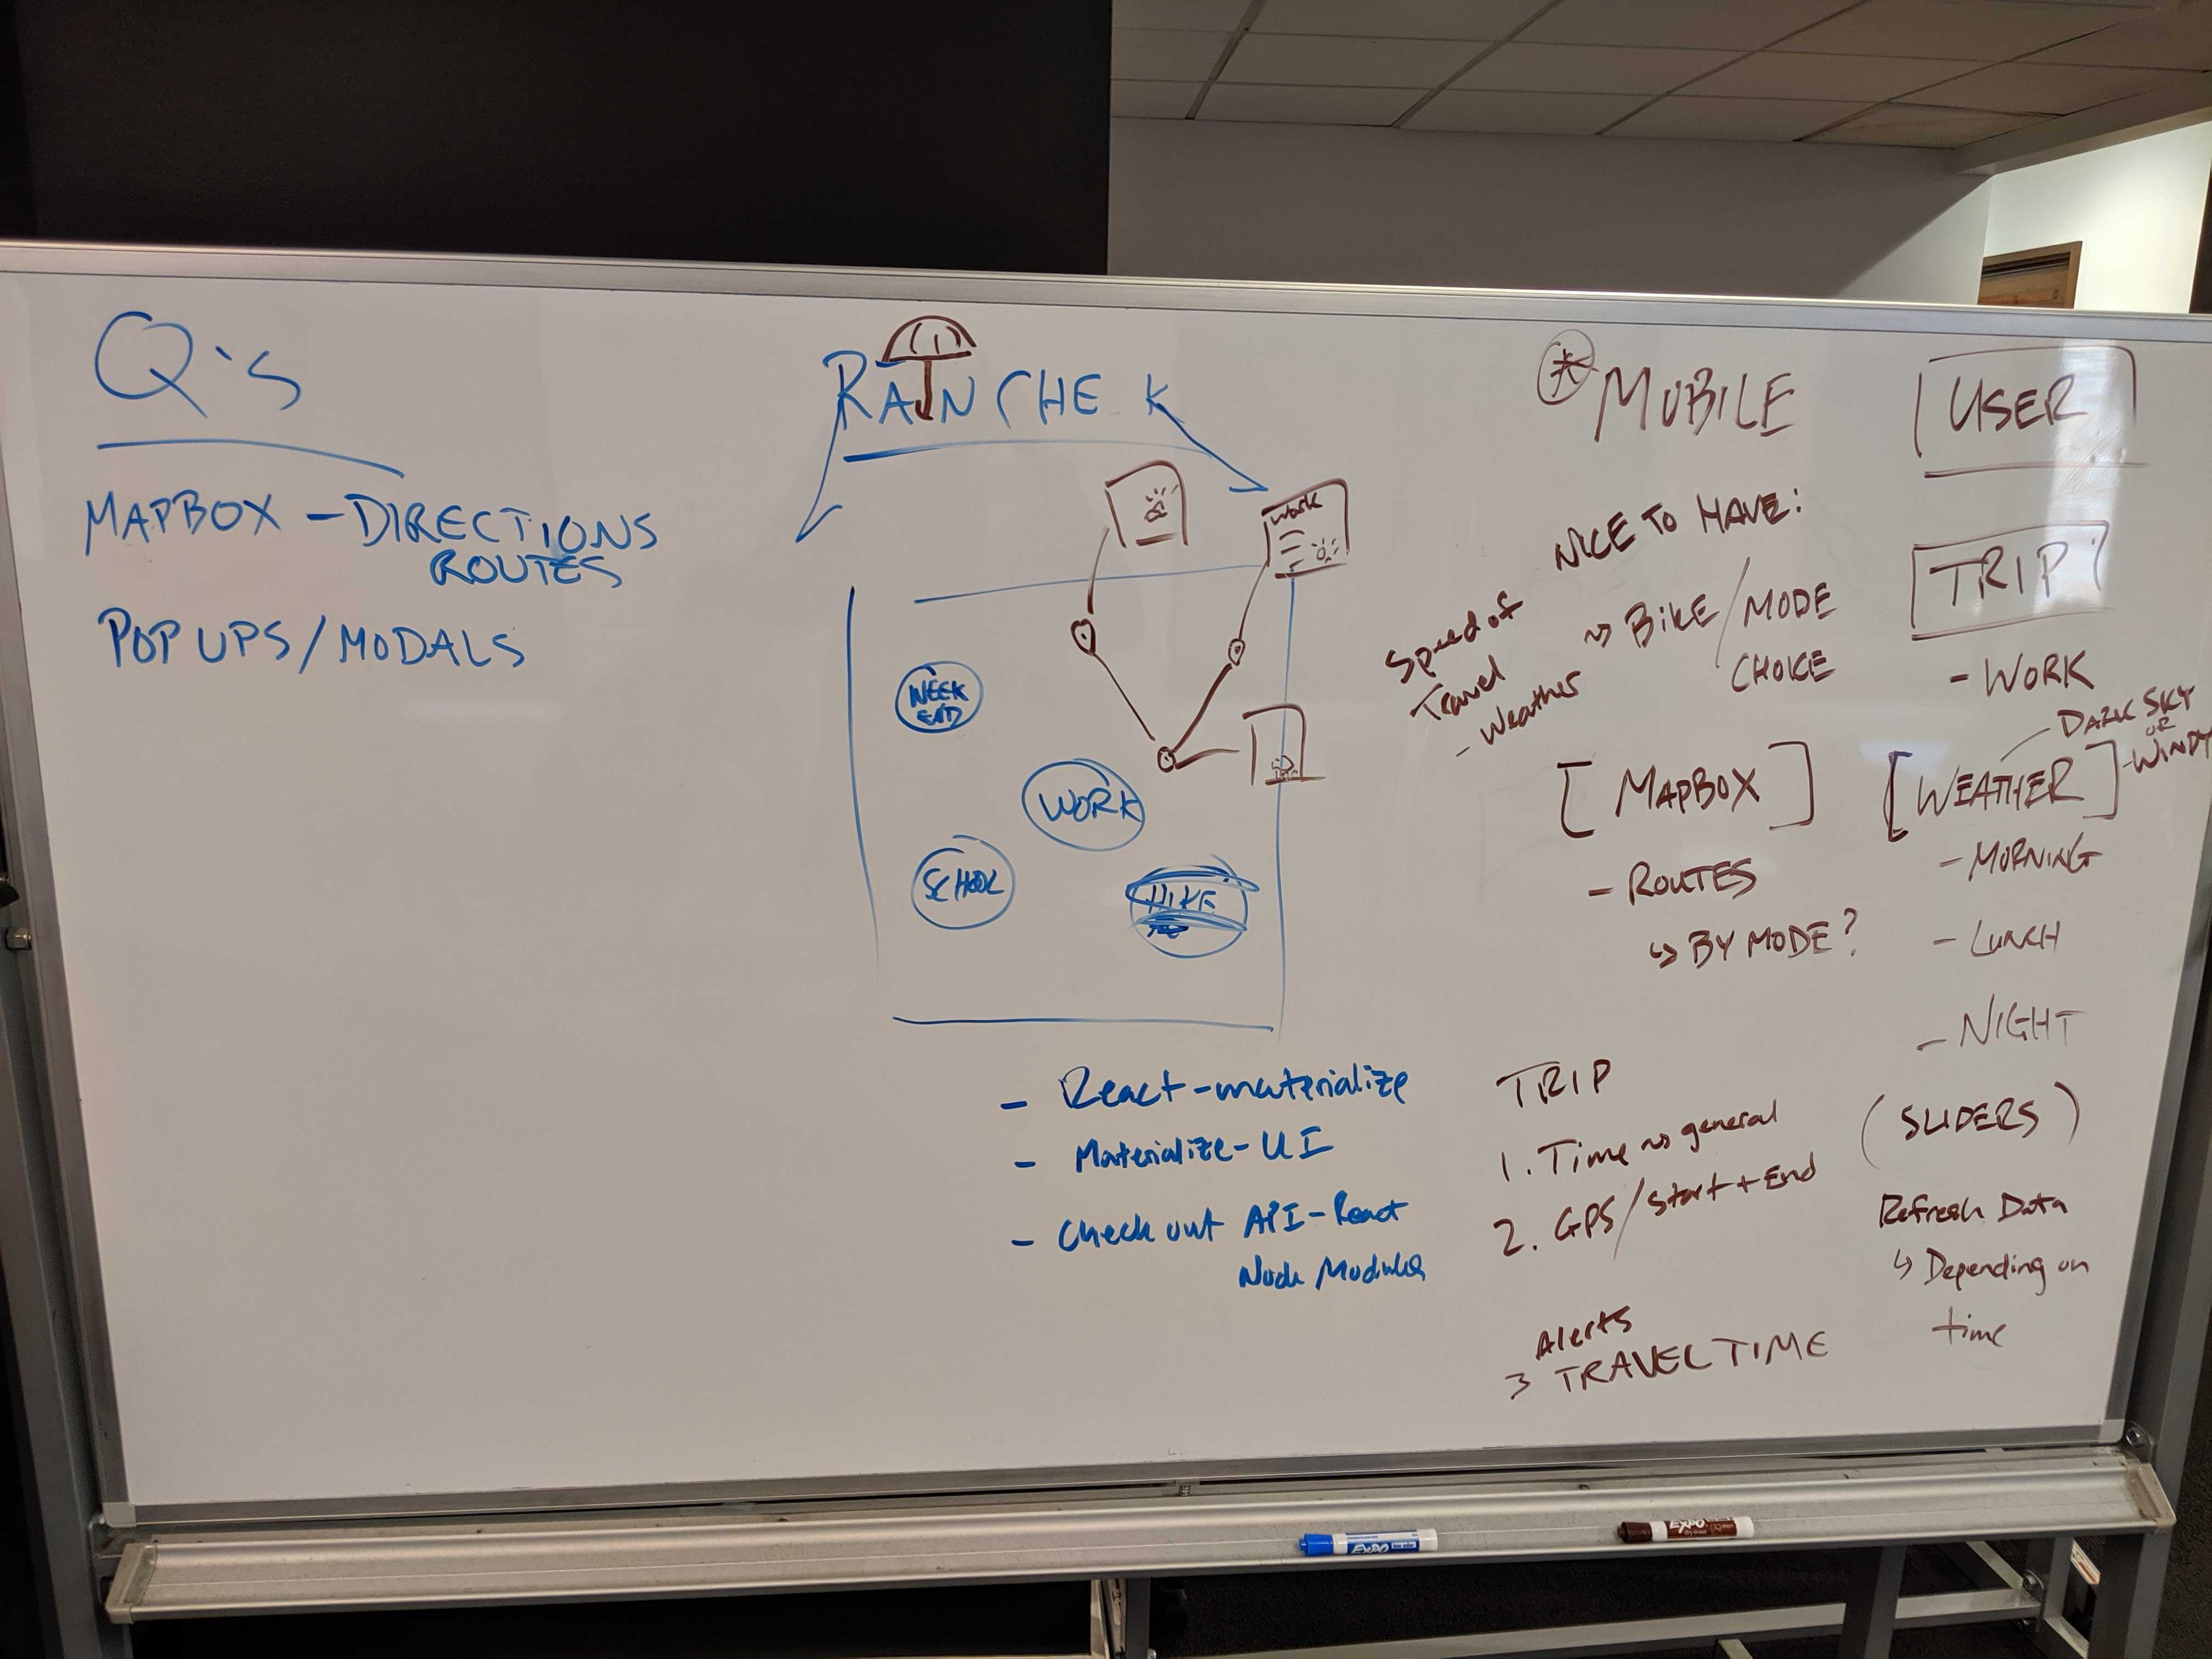 Q's
MAPBOX - DIRECTIONS
ROUTES
POP UPS / MODALS
RAINCHE K
Work
WEEK
END
WORK
SCHOOL
HIKE
- React-materialize
- Materialize-UI
- Check out API-React
Node Modules
* MOBILE
NICE TO HAVE:
Speed of
Travel
- Weather
↝ BIKE / MODE
CHOICE
[ MAPBOX ]
- ROUTES
↳ BY MODE?
TRIP
1. Time ↝ general
2. GPS / Start + End
Alerts
3 TRAVEL TIME
[USER]
[TRIP]
- WORK
DARK SKY
OR
- WINDY
[WEATHER]
- MORNING
- LUNCH
- NIGHT
(SLIDERS)
Refresh Data
↳ Depending on
time
EXPO
EXPO